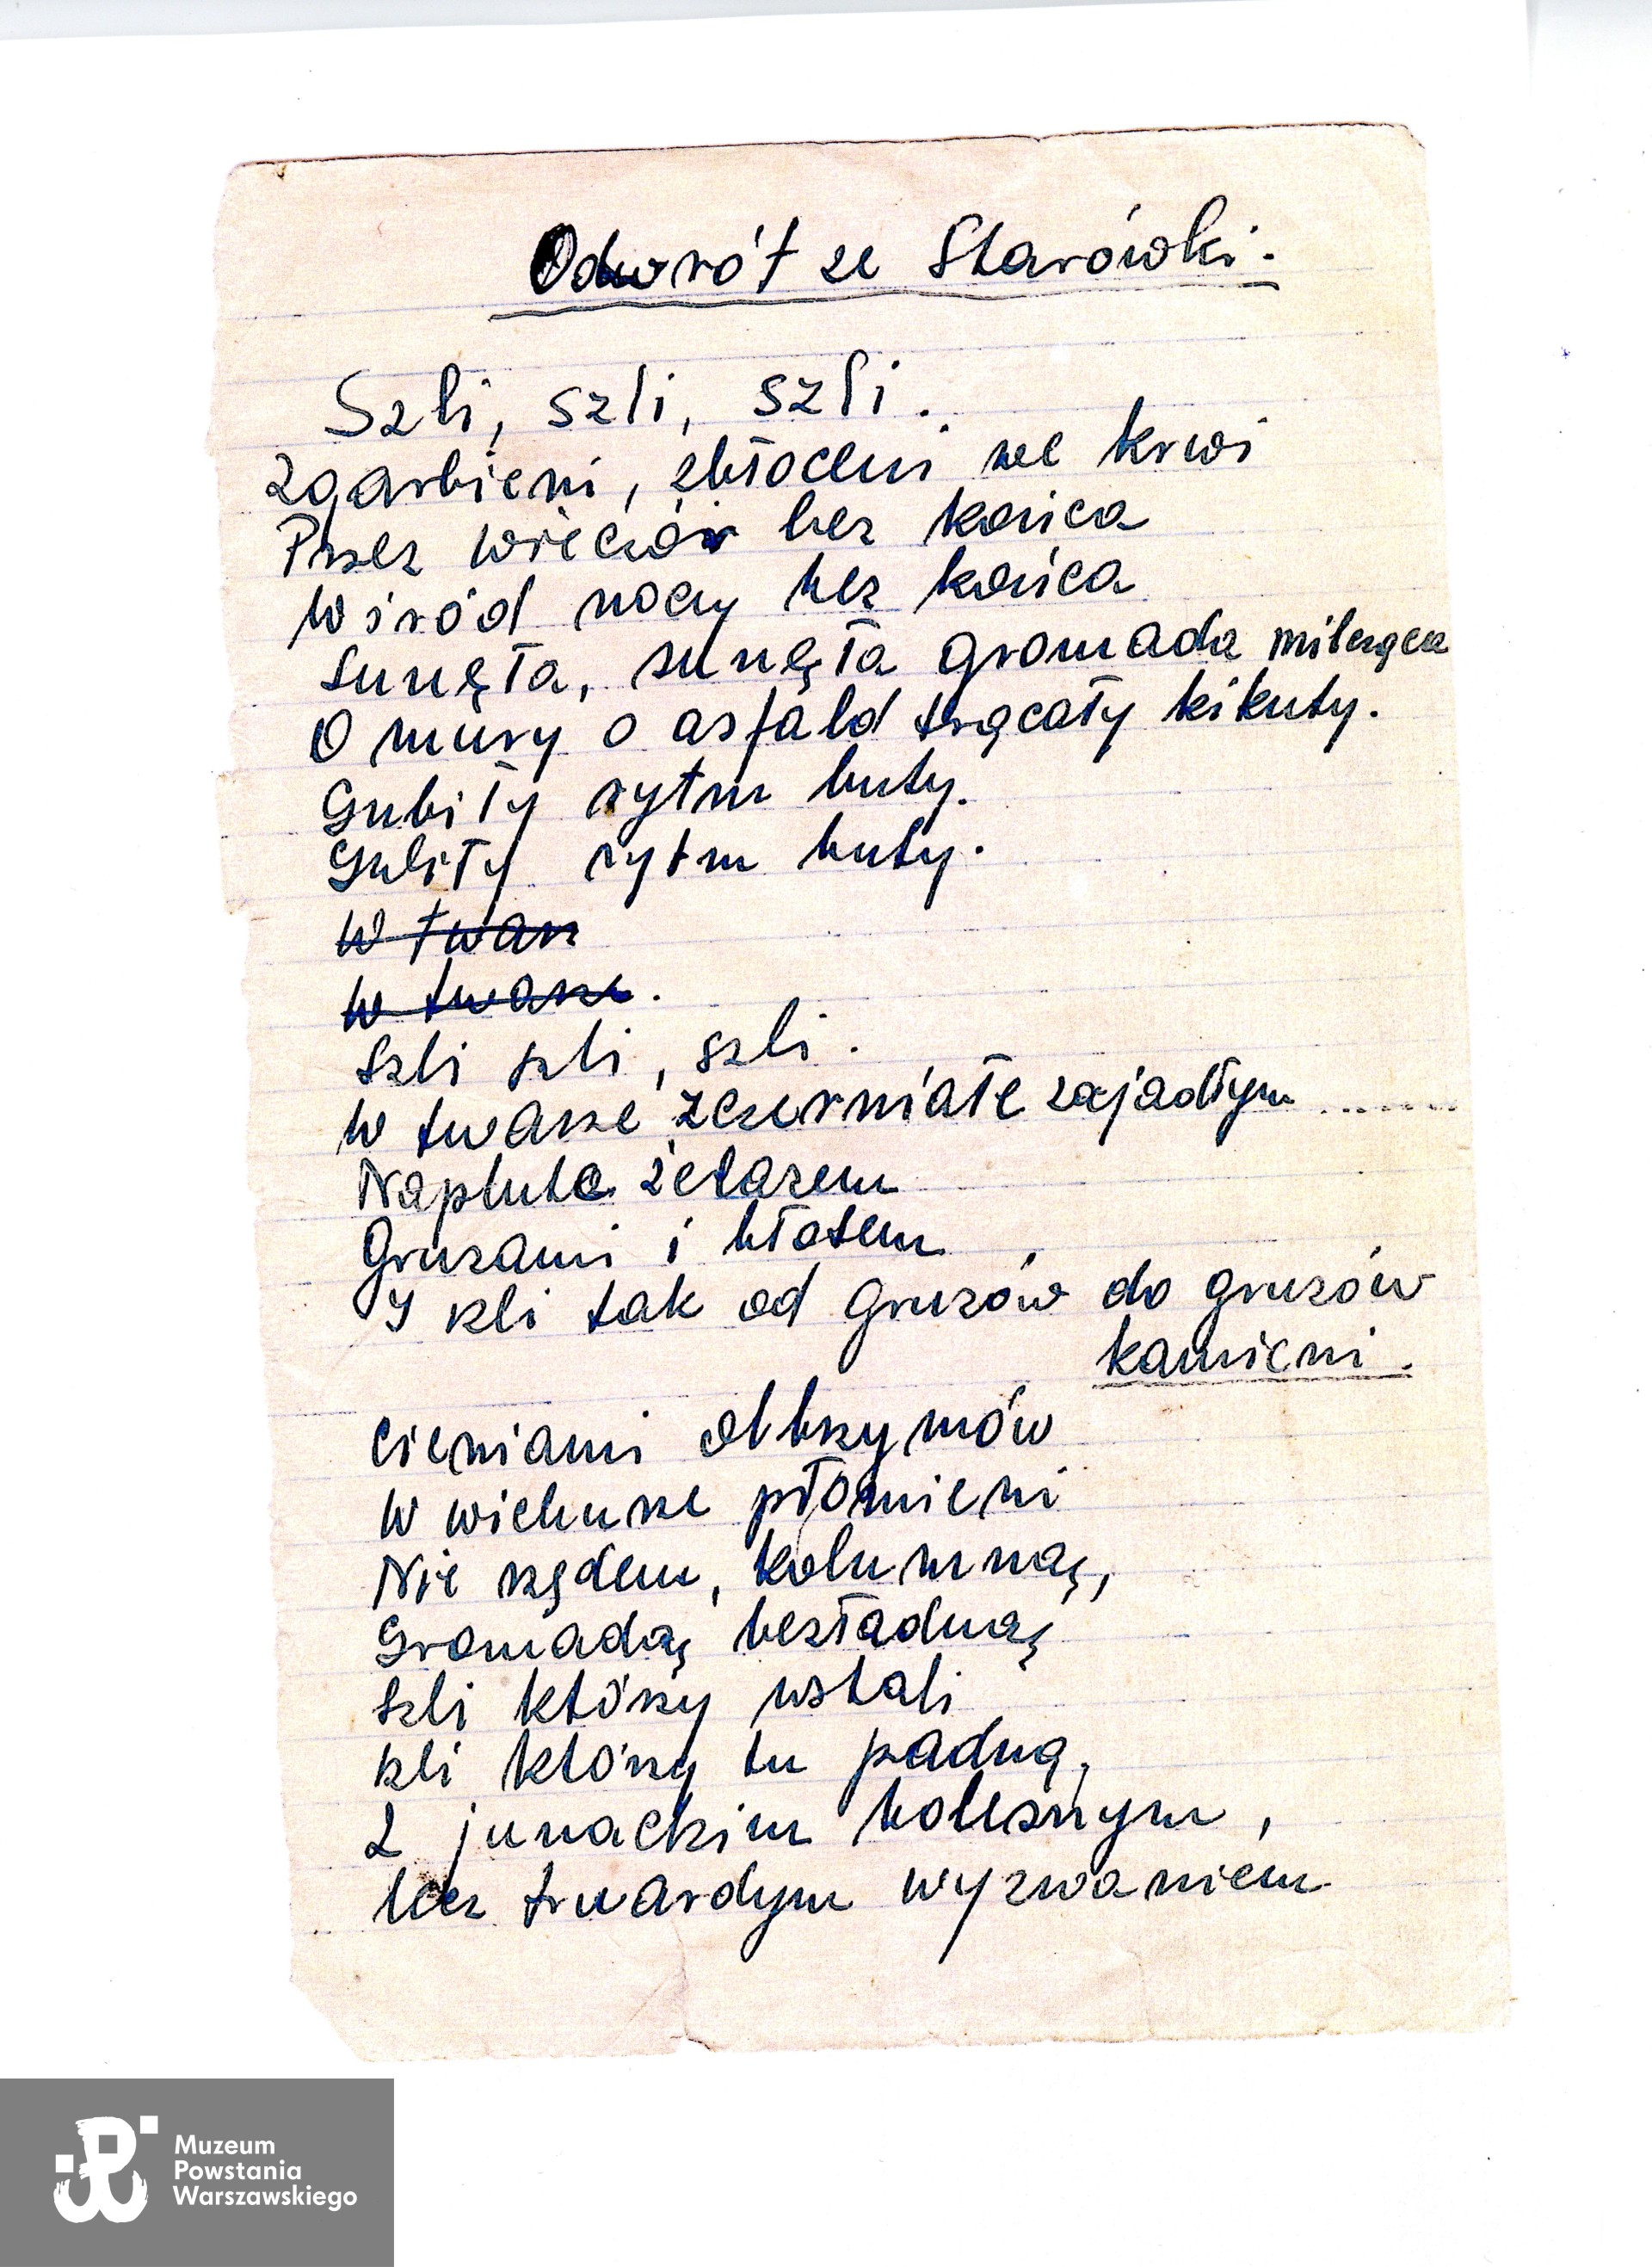 Odwrót ze Starówki.
Szli, szli, szli.
Zgarbieni, zbłoceni we krwi
Przez wieczór bez końca
Wśród nocy bez końca
Sunęła, sunęła gromada milcząca
O mury o asfald trącały kikuty.
Gubiły rytm buty.
Gubiły rytm buty.
W twarz
W twarze.
Szli szli, szli.
W twarze zczerniałe zajadłym ........
Napluto żelazem
Gruzami i błotem
I szli tak od gruzów do gruzów
kamieni.
Cieniami olbrzymów
W wichurze płomieni
Nie rzędem, kolumną,
Gromadą bezładną
Szli którzy wstali
szli którzy tu padną,
Z junackim bolesnym,
lecz twardym wyzwaniem
Muzeum
Powstania
Warszawskiego